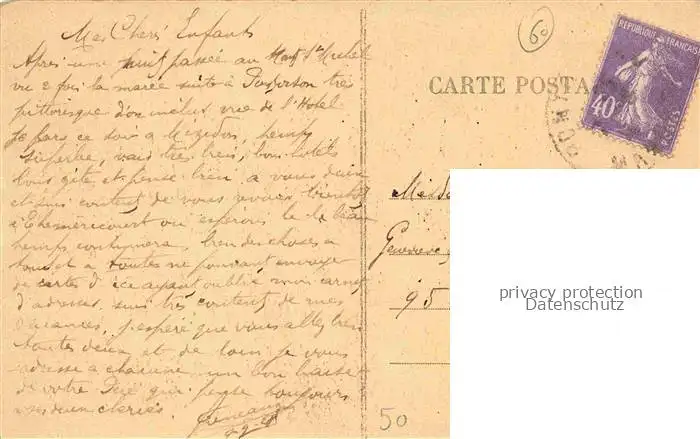 Mes Chers Enfants
Après une nuit passée au Mont St Michel
vu 2 fois la marée suite à très
pittoresque vue de l'Hotel
Je pars ce soir a Mezidon, temps
superbe, vais très bien, bons hotels
bons gite, et pense bien a vous deux
et suis content de vous revoir bientôt
ou esperons le le beau
temps continuera, bien des choses a
tous et a toutes ne pouvant envoyer
de cartes d'ici ayant oublié mon carnet
d'adresses, suis très content de mes
vacances, j'espère que vous allez bien
toutes deux et de loin je vous
adresse a chacune un bon baiser
de votre Père qui pense toujours
a ses deux cheries.
60
CARTE POSTA
REPUBLIQUE FRANÇAISE
40c
POSTES
Mesde
Genevieve
95
50
privacy protection
Datenschutz